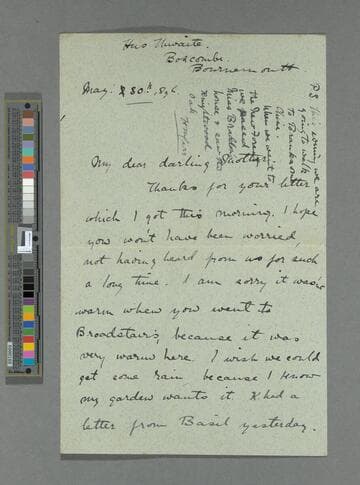 Boscombe
Bournemouth
May. 30th, 896.
My dear darling Mother
Thanks for your letter
which I got this morning. I hope
you won't have been worried,
not having heard from us for such
a long time. I am sorry it wasn't
warm when you went to
Broadstairs, because it was
very warm here. I wish we could
get some rain because I know
my garden wants it. K had a
letter from Basil yesterday.
P.S. This evening we are
going to walk
to Branksome
Chine.
when we went to
the New Forest
we passed
Miss Braddon's
house & saw the
Knightwood
oak